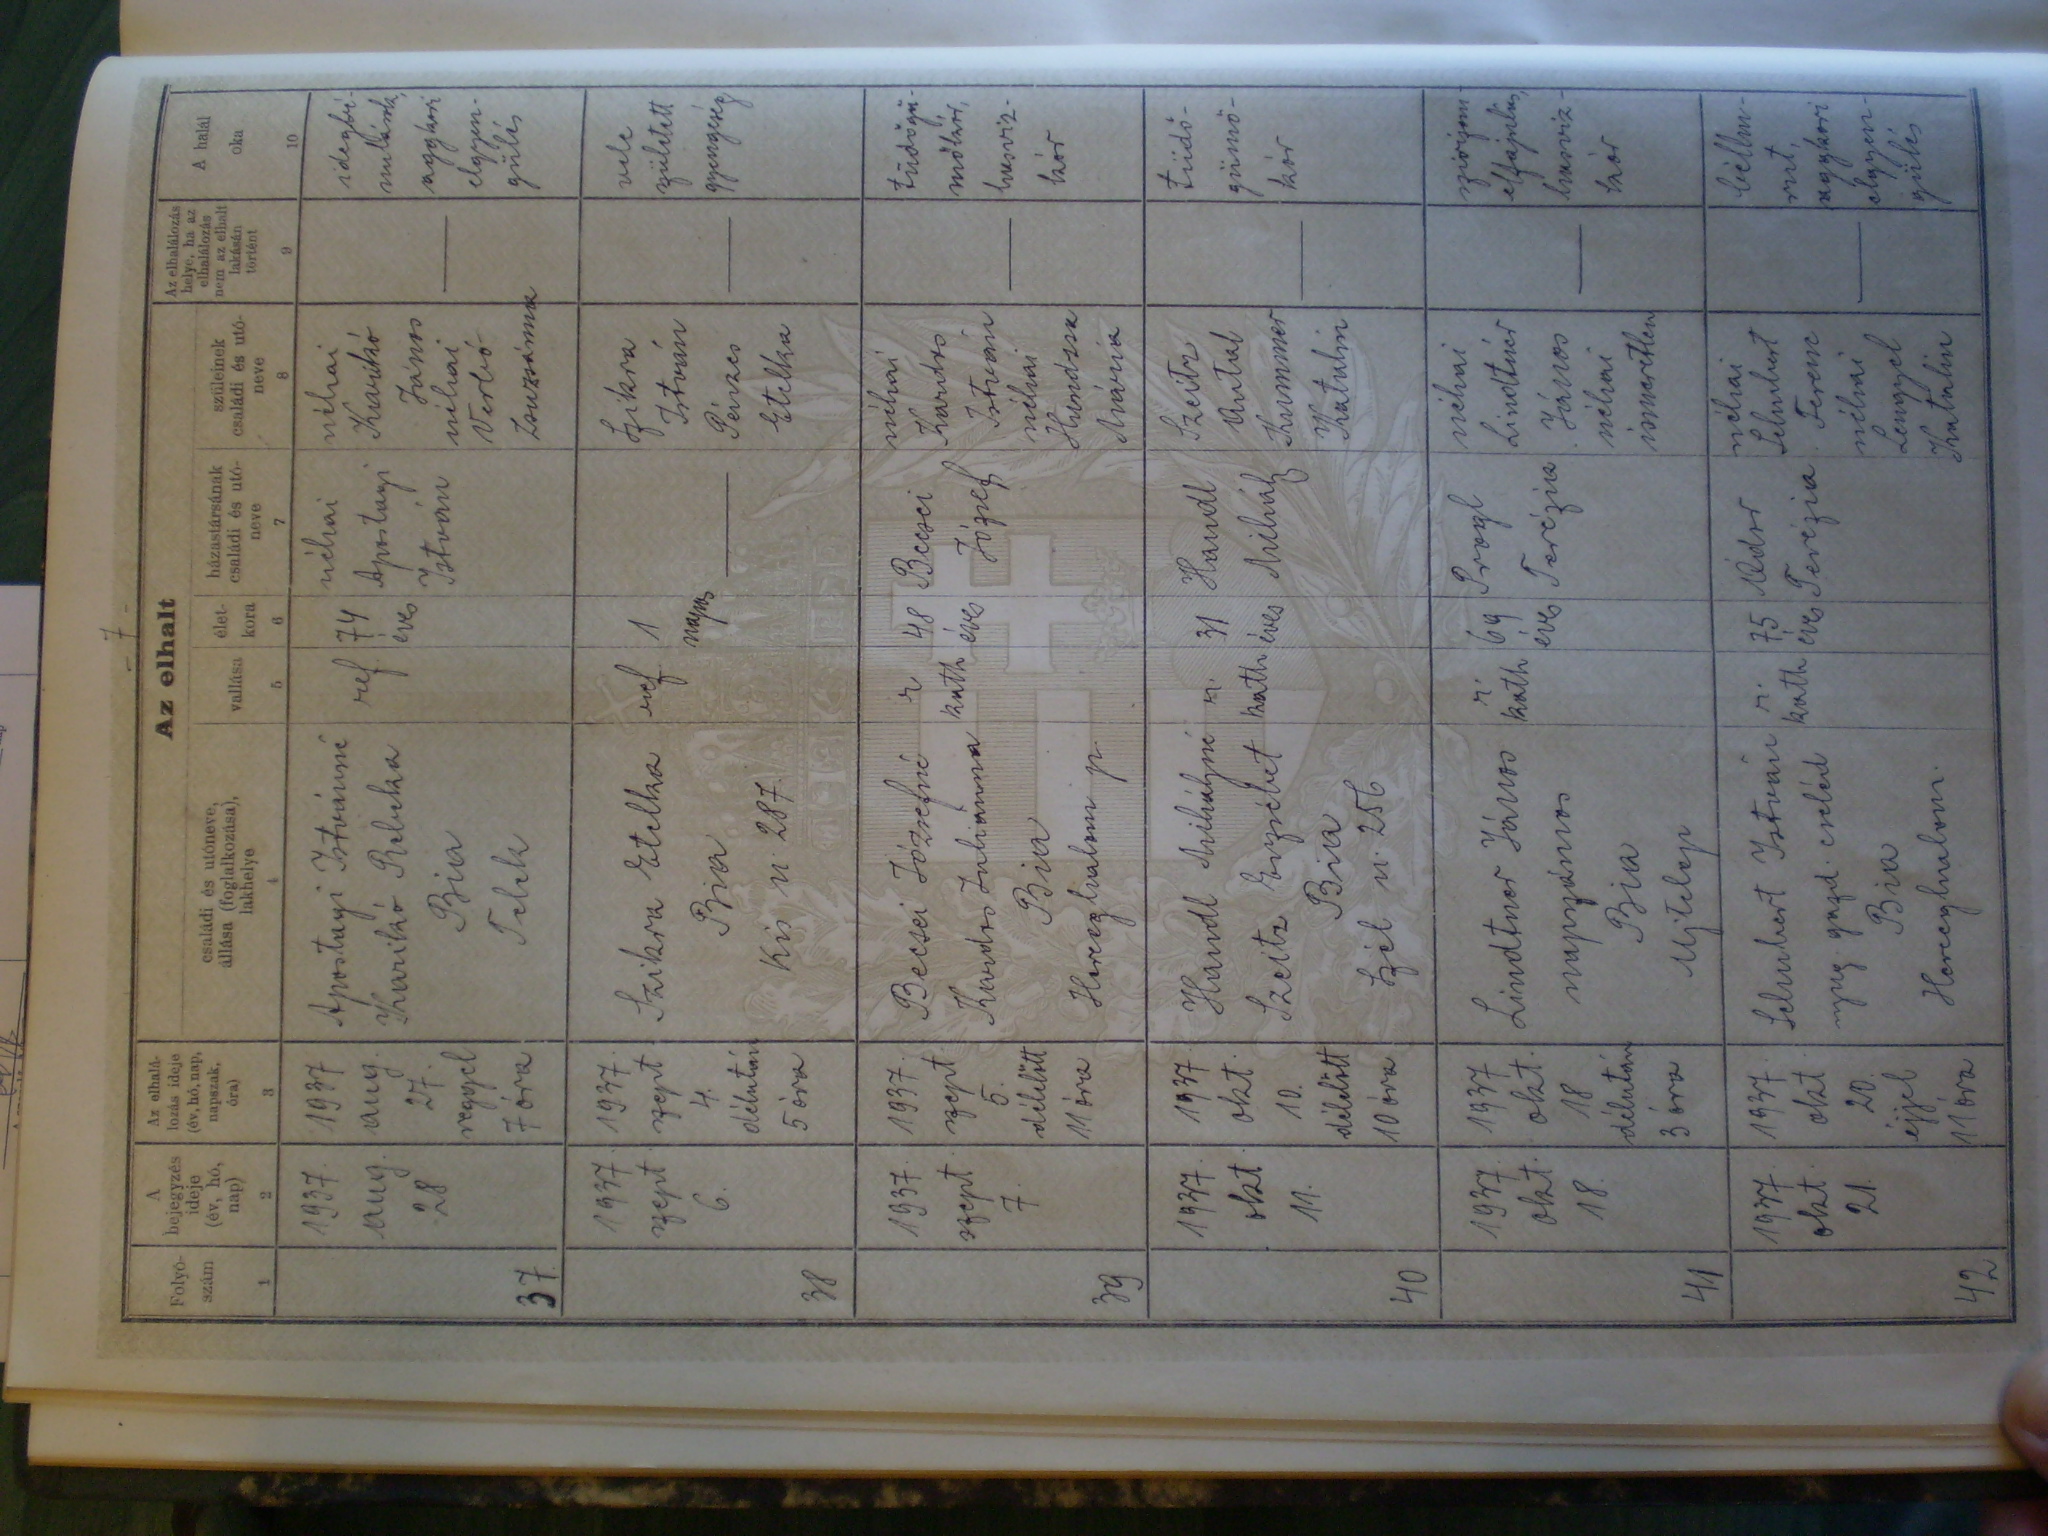 - 7 -
Az elhalt
Folyó-
szám
A
bejegyzés
ideje
(év, hó,
nap)
Az elhalá-
lozás ideje
(év, hó, nap,
napszak,
óra)
családi és utóneve,
állása (foglalkozása),
lakhelye
vallása
élet-
kora
házastársának
családi és utó-
neve
szüleinek
családi és utó-
neve
Az elhalálozás
helye, ha az
elhalálozás
nem az elhalt
lakásán
történt
A halál
oka
1
2
3
4
5
6
7
8
9
10
37
1937.
aug.
28
1937
aug.
27.
reggel
7 óra
Apostagi Istvánné
Karikó Rebeka
Bia
Telek
ref
74
éves
néhai
Apostagi
István
néhai
Karikó
János
néhai
Zsuzsánna
—
aggkori
elgyen-
gülés
38
1937.
szept.
6.
1937.
szept.
4.
délután
5 óra
Szikra Etelka
Bia
Kis u. 287.
ref
1
napos
—
Szikra
István
Etelka
—
vele
született
gyengeség
39
1937.
szept.
7.
1937.
szept.
5.
délelőtt
11 óra
Becsei Józsefné
Kardos Juliánna
Bia
Herceghalom p.
r
kath
48
éves
Becsei
József
néhai
Kardos
István
néhai
Mária
—
tüdőgü-
mőkór,
hasvíz-
kór
40
1937.
okt.
11.
1937.
okt.
10.
délelőtt
10 óra
Handl Mihályné
Szeitz Erzsébet
Bia
Szél u. 256
r.
kath
31
éves
Handl
Mihály
Szeitz
Antal
Kummer
Katalin
—
tüdő-
gümő-
kór
41
1937.
okt.
18.
1937
okt.
18
délután
3 óra
Lindtner János
napszámos
Bia
Ujtelep
r.
kath
69
éves
Progl
Terézia
néhai
Lindtner
János
néhai
ismeretlen
—
elfajulás,
hasvíz-
kór
42
1937.
okt.
21.
1937.
okt.
20.
éjjel
11 óra
Schubert István
nyug. gazd. cseléd
Bia
Herceghalom.
r.
kath
75
éves
Terézia
néhai
Schubert
Ferenc
néhai
Lengyel
Katalin
—
aggkori
elgyen-
gülés